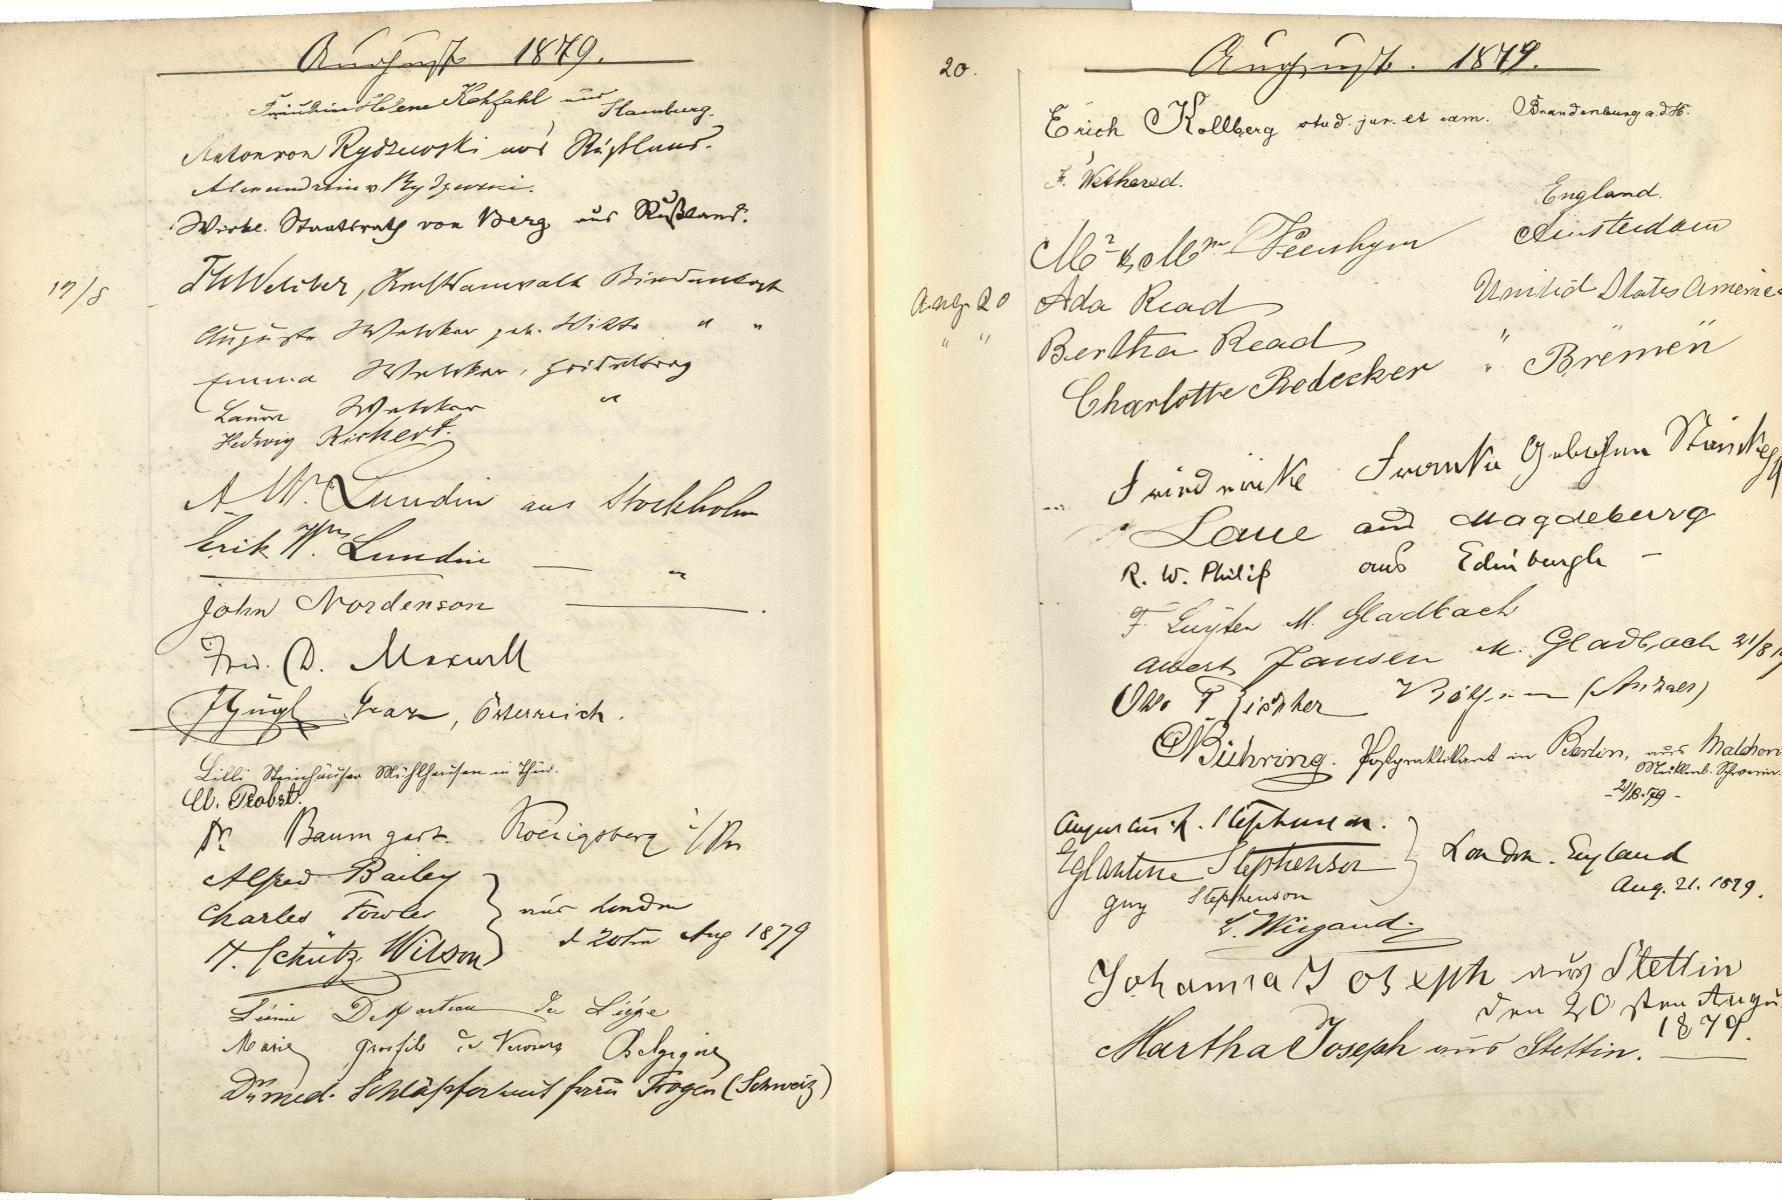 August 1879.
Fräulein Helene Kohfahl aus Hamburg.
Anton von Rydzewski aus Rußland.
Alexandrine v. Rydzewski.
Wirkl. Staatsrath von Berg aus Rußland.
19/8 Welcker, Rechtsanwalt
Auguste Welcker geb. " "
Emma Welcker, Heidelberg
Laura Welcker "
Hedwig Rickert.
A. Wm. Lundin aus Stockholm
Erik Wm. Lundin — "
John Nordenson — .
Fred. D. Maxwell
Graz, Österreich.
Lilli Steinhäuser Mühlhausen in Thür.
Cl. Probst.
Dr. Baumgart. Koenigsberg i/Pr
Alfred Bailey
Charles Fowler } aus London
H. Schütz Wilson d 20ten Aug 1879
de Liége
Marie Grosfils de Verviers Belgique
Dr. med. Schläpfer mit Frau Trogen (Schweiz)
20.
August. 1879.
Erich Kollberg stud. jur. et cam. Brandenburg a.d.H.
F. Wethered.
England.
Mr & Mm Amsterdam
Aug 20 Ada Read United States America
" " Bertha Read "
Charlotte Bedecker " Bremen
Friederike Franke
Laue aus Magdeburg
R. W. Philip aus Edinburgh —
F. Luyten M. Gladbach
Albert Jansen M. Gladbach 21/8
Otto Fischer
Bühring. Postpraktikant in Berlin, aus Malchow
Mecklenb. Schwerin.
- 21/8.79 -
Augustus K. Stephenson.
Eglantine Stephenson } London. England
Guy Stephenson Aug. 21. 1879.
E. Wiegand.
Johanna Joseph aus Stettin
den 20sten Augu
1879.
Martha Joseph aus Stettin.